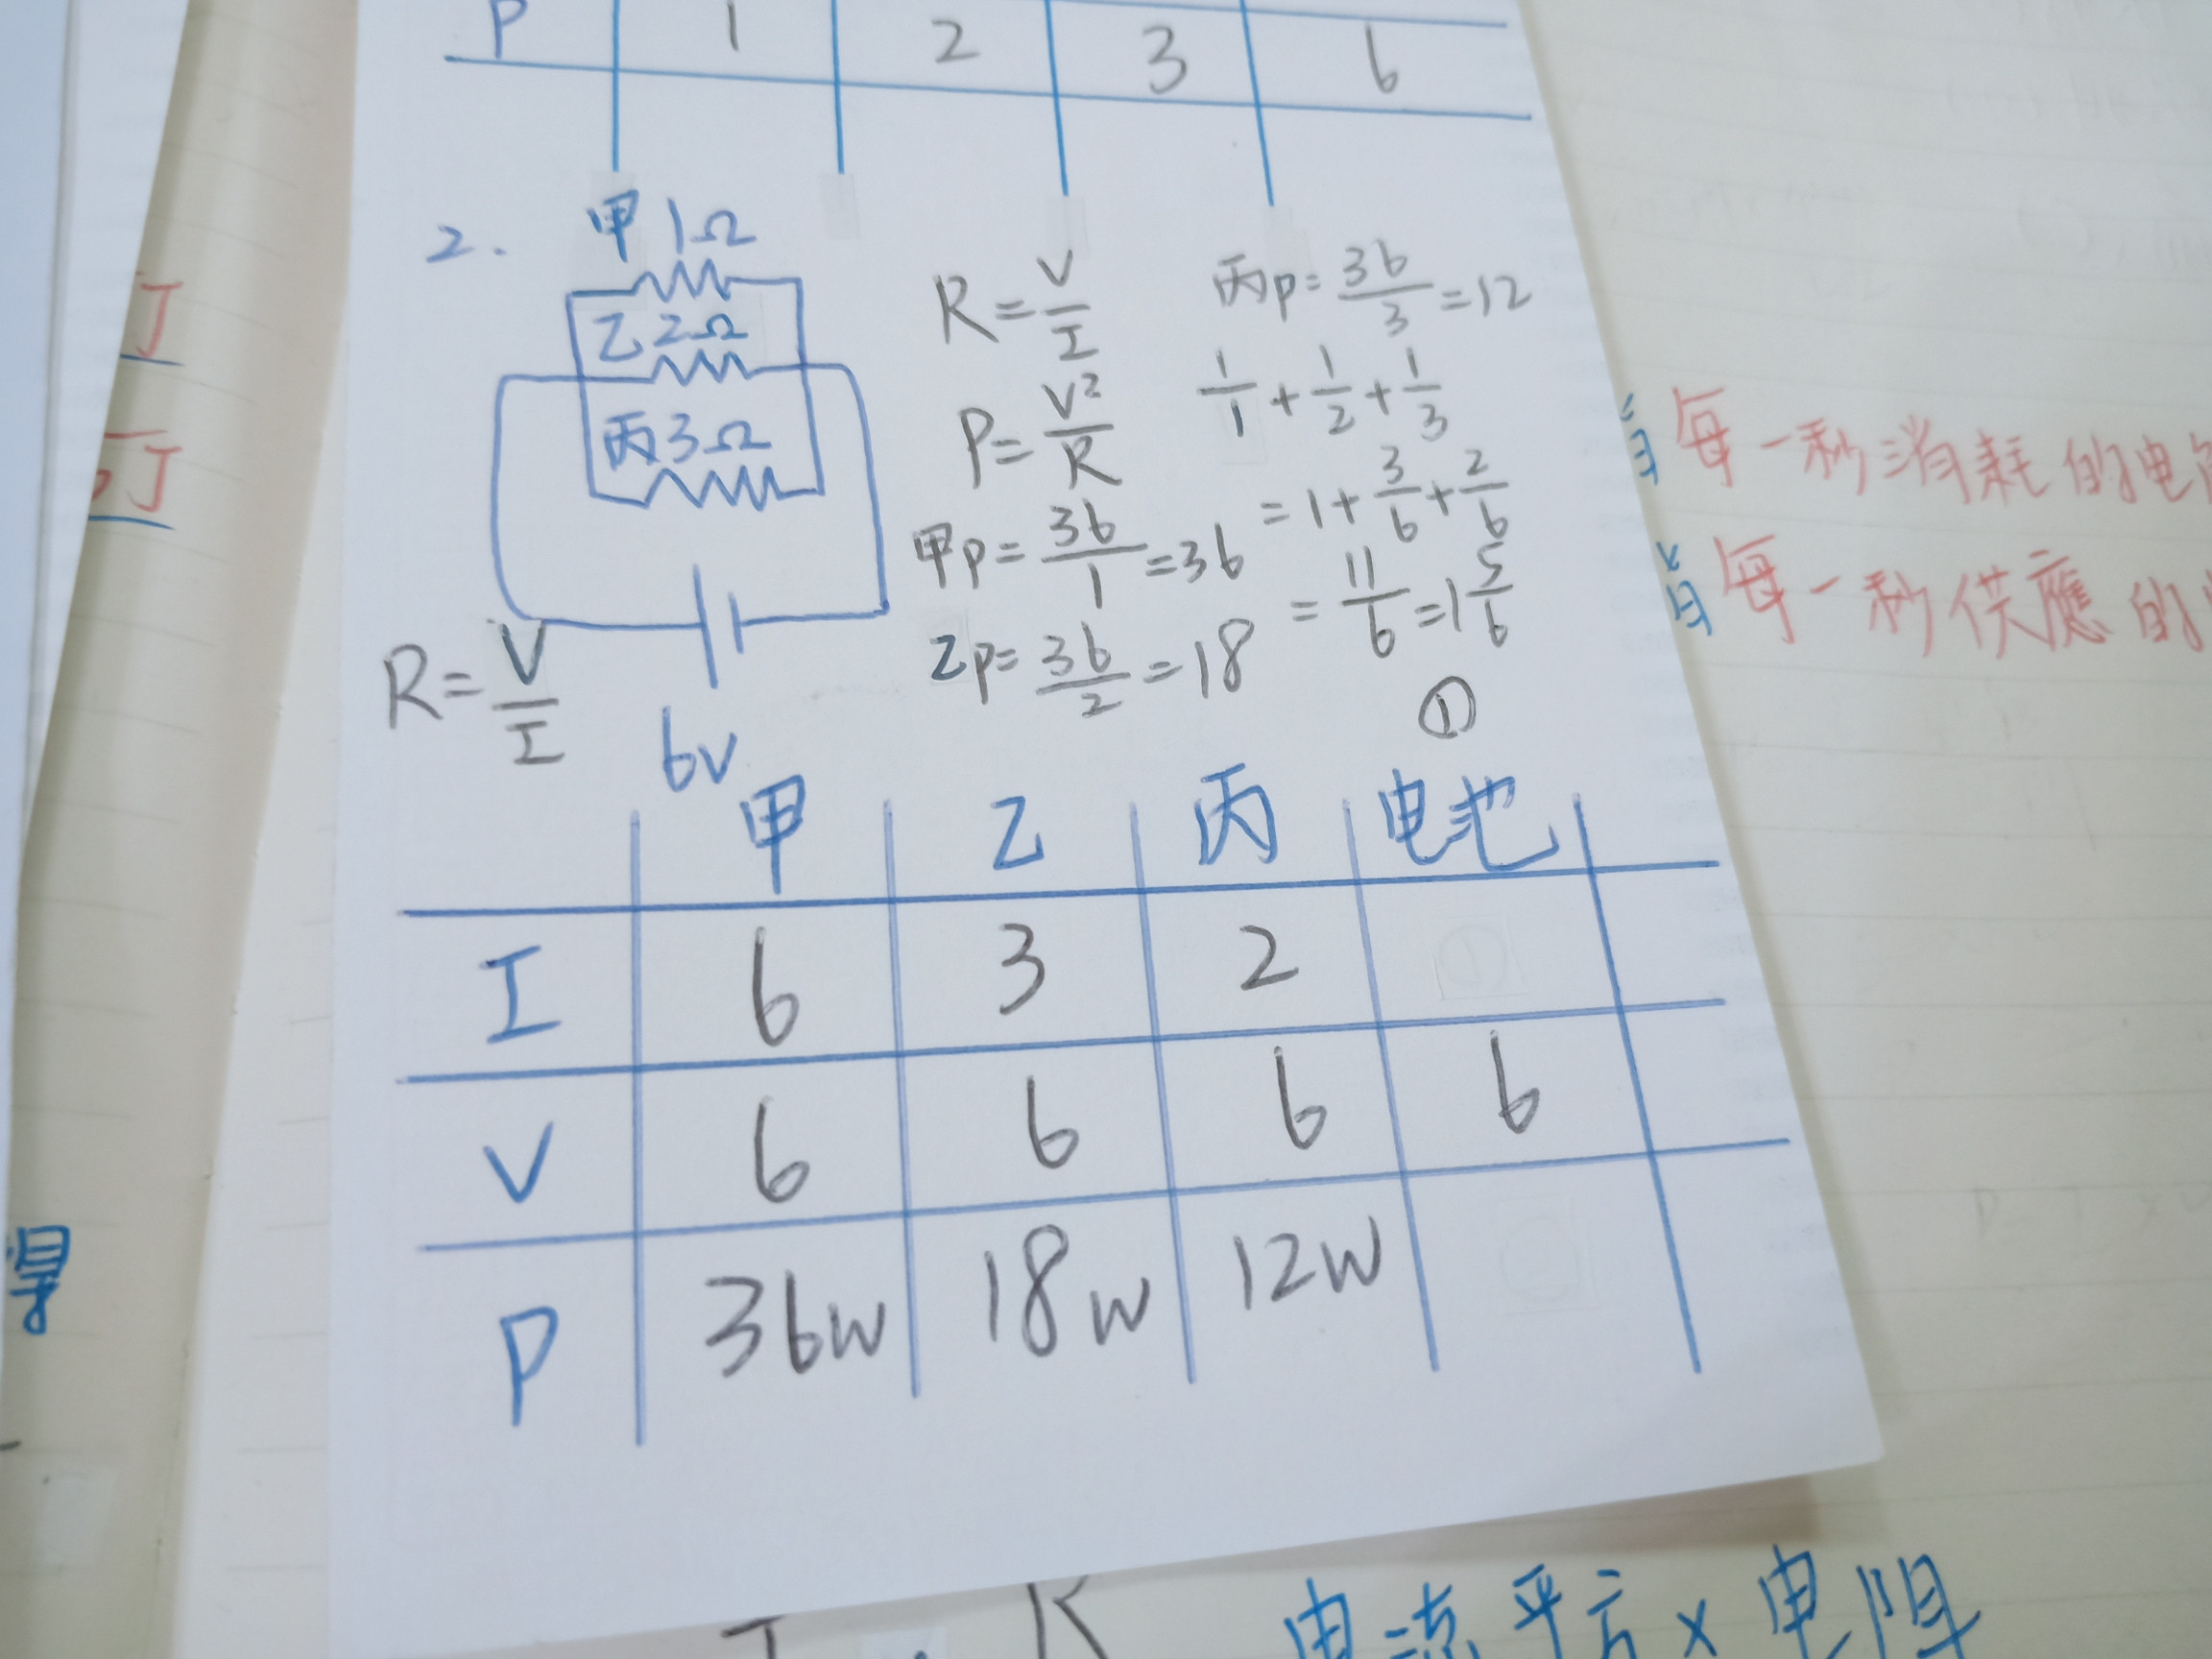 P 1 2 3 6
2. 甲 1Ω
乙 2Ω
丙 3Ω
6V
R=V/I
R=V/I
P=V²/R
甲P=36/1=36
乙P=36/2=18
丙P=36/3=12
1/1+1/2+1/3
=1+3/6+2/6
=11/6=1 5/6
①
甲 乙 丙 电池
I 6 3 2
V 6 6 6 6
P 36W 18W 12W
每一秒消耗的电
每一秒供應的
电流平方×电阻